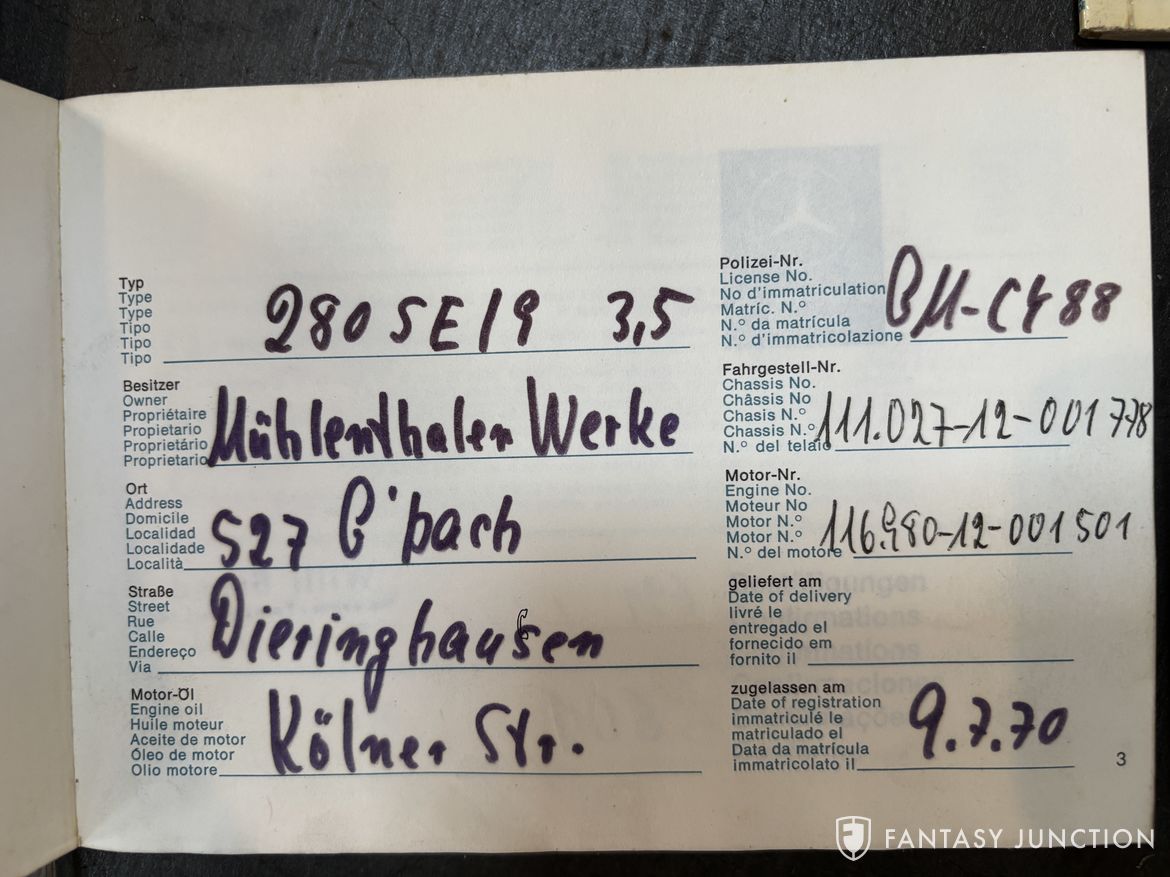 Typ
Type
Type
Tipo
Tipo
Tipo
280 SE/9 3,5
Besitzer
Owner
Propriétaire
Propietario
Proprietário
Proprietario
Mühlenthaler Werke
Ort
Address
Domicile
Localidad
Localidade
Località
527 G'bach
Straße
Street
Rue
Calle
Endereço
Via
Dieringhausen
Motor-Öl
Engine oil
Huile moteur
Aceite de motor
Óleo de motor
Olio motore
Kölner Str.
Polizei-Nr.
License No.
No d'immatriculation
Matríc. N.º
N.º da matrícula
N.º d'immatricolazione
GM-CY 88
Fahrgestell-Nr.
Chassis No.
Châssis No
Chasis N.º
Chassis N.º
N.º del telaio
111.027-12-001 778
Motor-Nr.
Engine No.
Moteur No
Motor N.º
Motor N.º
N.º del motore
116.980-12-001 501
geliefert am
Date of delivery
livré le
entregado el
fornecido em
fornito il
zugelassen am
Date of registration
immatriculé le
matriculado el
Data da matrícula
immatricolato il
9.7.70
3
FANTASY JUNCTION